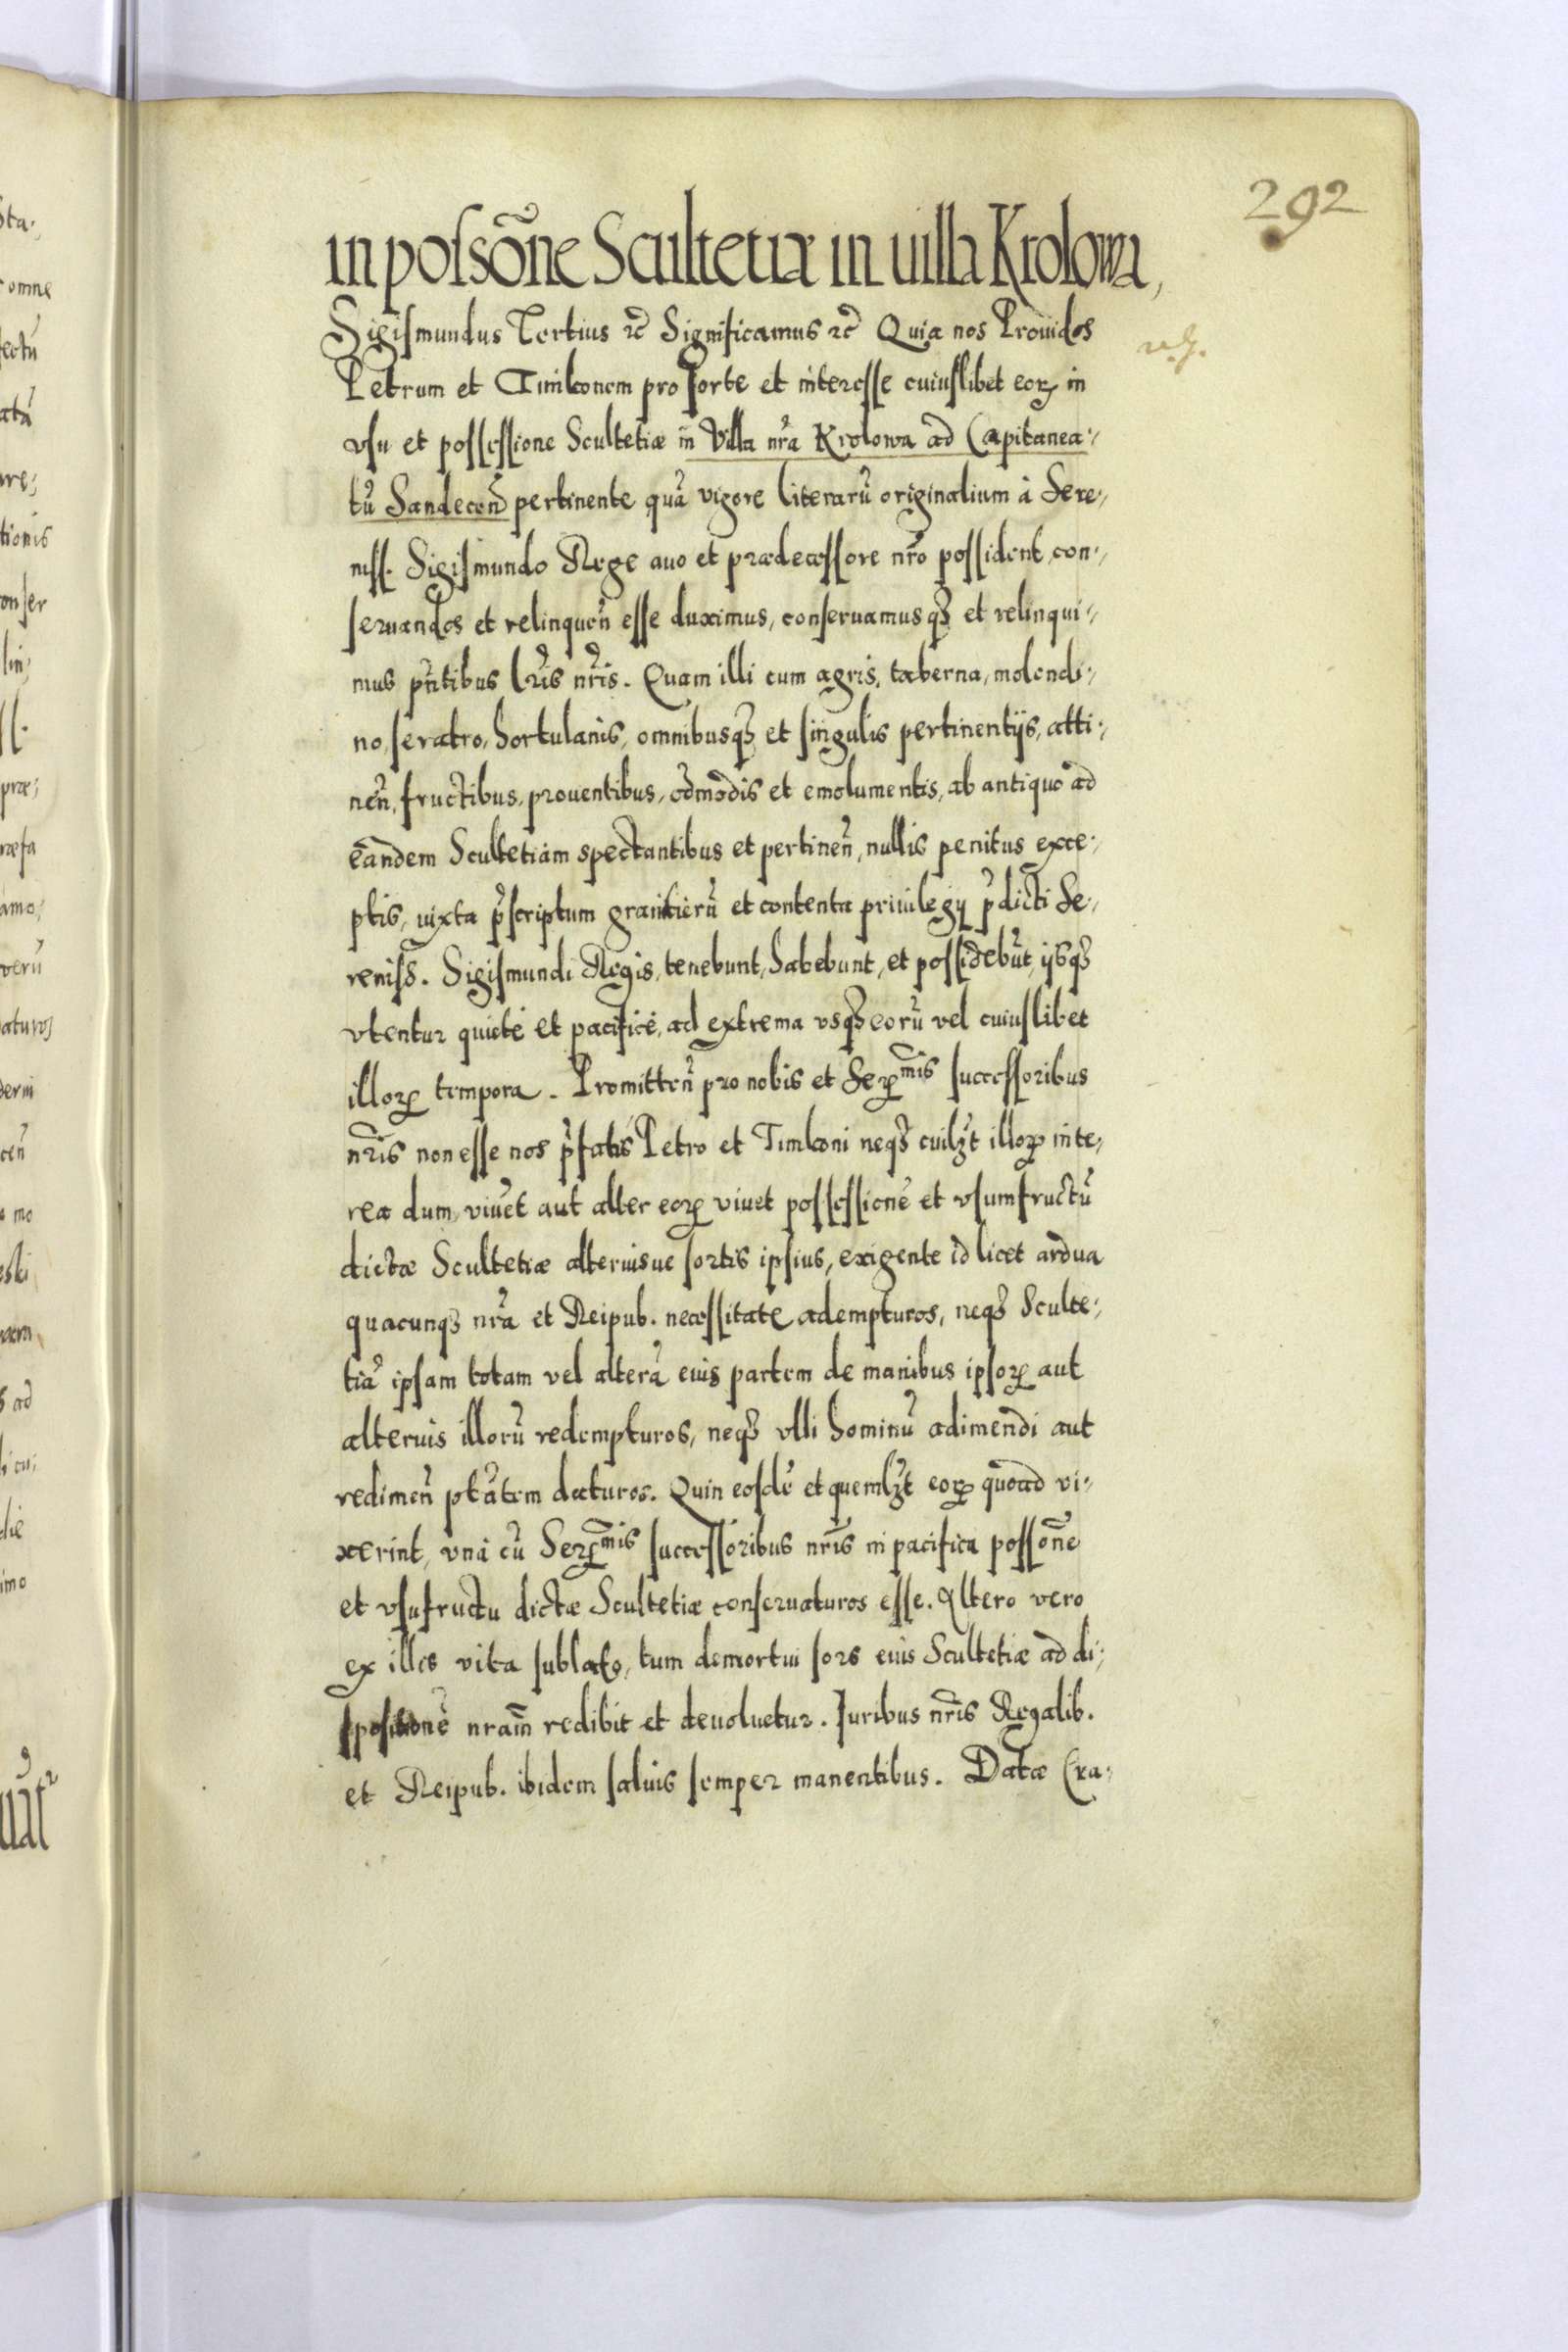 292
in possõne Scultetiæ in villa Krolowa,
Sigismundus Tertius etc̃ Significamus etc̃ Quia nos Prouidos
Petrum et Timkonem pro sorte et interesse cuiuslibet eorꝝ in
vsu et possessione Scultetiæ in Villa nr̃a Krolowa ad Capitanea-
tũ Sandecen̄ pertinente quã vigore literarũ originalium à Sere-
niss. Sigismundo Rege auo et prædecessore nr̃o possident, con-
seruandos et relinquen̄ esse duximus, conseruamusqȝ et relinqui-
mus pñtibus lr̃is nr̃is. Quam illi cum agris, taberna, molendi-
no, seratro, hortulanis, omnibusqȝ et singulis pertinentijs, atti-
nen̄, fructibus, prouentibus, cõmodis et emolumentis, ab antiquo ad
eandem Scultetiam spectantibus et pertinen̄, nullis penitus exce-
ptis, iuxta p̃scriptum granicierũ et contenta priuilegij p̃dicti Se-
reniss. Sigismundi Regis, tenebunt, habebunt, et possidebũt, ijsqȝ
vtentur quietè et pacificè, ad extrema vsqȝ eorũ vel cuiuslibet
illorꝝ tempora. Promitten̄ pro nobis et Serꝫmis successoribus
nr̃is non esse nos p̃fatis Petro et Timkoni neqȝ cuilꝫt illorꝝ inte-
rea dum viuẽt aut alter eorꝝ viuet possessionẽ et vsumfructũ
dictæ Scultetiæ alteriusue sortis ipsius, exigente id licet ardua
quacunqȝ nr̃a et Reipub. necessitate adempturos, neqȝ Sculte-
tiã ipsam totam vel alterã eius partem de manibus ipsorꝝ aut
alterius illorũ redempturos, neqȝ vlli hominũ adimendi aut
redimen̄ ptãtem daturos. Quin eosdẽ et quemlꝫt eorꝝ quoad vi-
xerint, vnà cũ Serꝫmis successoribus nr̃is in pacifica possõne
et vsufructu dictæ Scultetiæ conseruaturos esse. Altero vero
ex illis vita sublato, tum demortui sors eius Scultetiæ ad di-
spositionẽ nram̃ redibit et deuoluetur. Iuribus nr̃is Regalib.
et Reipub. ibidem saluis semper manentibus. Datæ Cra-